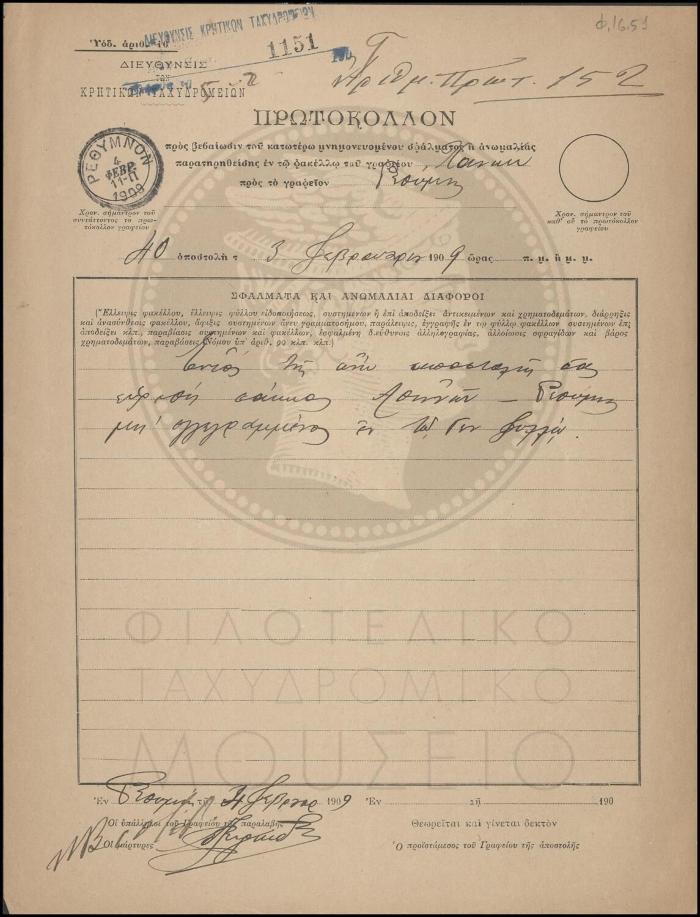 Φ.16.51
Ὑπόδ. ἀριθ. 16
ΔΙΕΥΘΥΝΣΙΣ ΚΡΗΤΙΚΩΝ ΤΑΧΥΔΡΟΜΕΙΩΝ
1151
190
ΔΙΕΥΘΥΝΣΙΣ
ΤΩΝ
ΚΡΗΤΙΚΩΝ ΤΑΧΥΔΡΟΜΕΙΩΝ
Ἀριθμ. Πρωτ. 152
ΠΡΩΤΟΚΟΛΛΟΝ
πρὸς βεβαίωσιν τοῦ κατωτέρω μνημονευομένου σφάλματος ἢ ἀνωμαλίας
παρατηρηθείσης ἐν τῷ φακέλλῳ τοῦ γραφείου Χανίων
πρὸς τὸ γραφεῖον Ρεθύμνης
ΡΕΘΥΜΝΟΝ
4
ΦΕΒΡ
11-Π
1909
Χρον. σήμαντρον τοῦ
συντάττοντος τὸ πρω-
τόκολλον γραφείου
Χρον. σήμαντρον τοῦ
καθ' οὗ τὸ πρωτόκολλον
γραφείου
40 ἀποστολὴ τ 3 Φεβρουαρίου 1909 ὥρας π. μ. ἢ μ. μ.
ΣΦΑΛΜΑΤΑ ΚΑΙ ΑΝΩΜΑΛΙΑΙ ΔΙΑΦΟΡΟΙ
(Ἔλλειψις φακέλλου, ἔλλειψις φύλλου εἰδοποιήσεως, συστημένων ἢ ἐπὶ ἀποδείξει ἀντικειμένων καὶ χρηματοδεμάτων, διάρρηξις
καὶ ἀνασύνθεσις φακέλλου, ἄφιξις συστημένων ἄνευ γραμματοσήμου, παράλειψις, ἐγγραφῆς ἐν τῷ φύλλῳ φακέλλων συστημένων ἐπὶς
ἀποδείξει κλπ., παραβίασις συστημένων καὶ φακέλλων, ἐσφαλμένη διεύθυνσις ἀλληλογραφίας, ἀλλοίωσις σφραγίδων καὶ βάρος
χρηματοδεμάτων, παραβάσεις Νόμου ὑπ' ἀριθ. 90 κλπ. κλπ.)
Ἐντὸς τῆς ἄνω ἀποστολῆς σας
εὑρέθη σάκκος Ἀθηνῶν – Ρεθύμνης
μὴ ἐγγεγραμμένος ἐν τῷ φύλλῳ.
ΦΙΛΟΤΕΛΙΚΟ
ΤΑΧΥΔΡΟΜΙΚΟ
ΜΟΥΣΕΙΟ
Ἐν Ρεθύμνῃ τῇ 4 Φεβρουαρ 1909
Ἐν τῇ 190
Οἱ ὑπάλληλοι τοῦ Γραφείου τῆς παραλαβῆς
Οἱ μάρτυρες
Θεωρεῖται καὶ γίνεται δεκτὸν
Ὁ προϊστάμενος τοῦ Γραφείου τῆς ἀποστολῆς